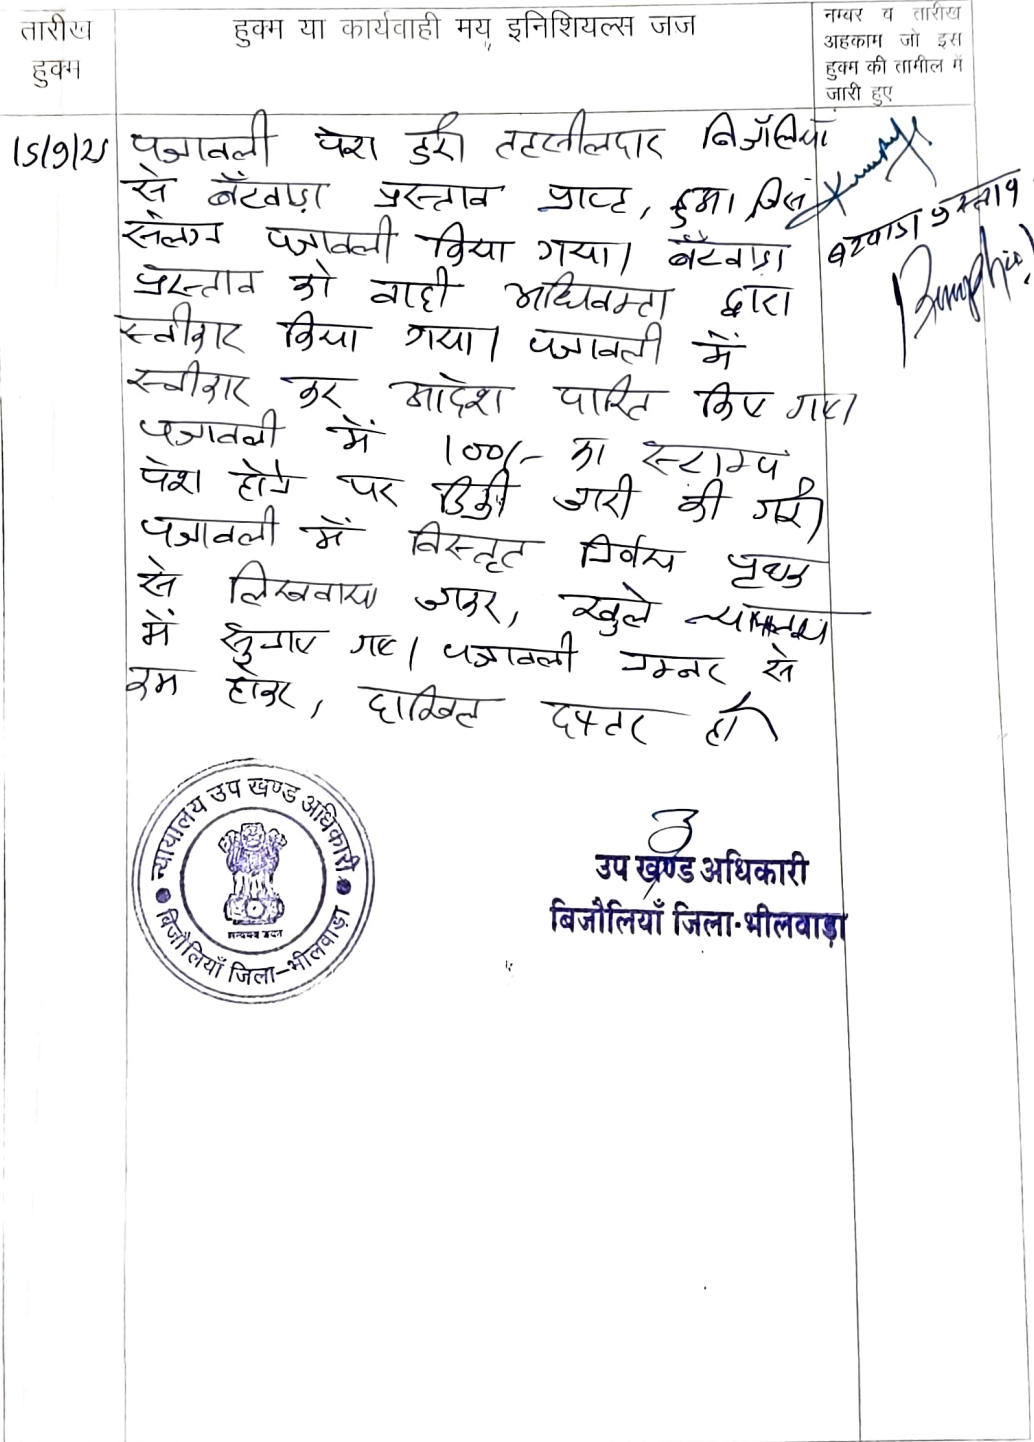 तारीख
हुक्म
हुक्म या कार्यवाही मय इनिशियल्स जज
नम्बर व तारीख
अहकाम जो इस
हुक्म की तामील में
जारी हुए
15/9/25
पत्रावली पेश हुई। तहसीलदार बिजौलियाँ
से बँटवाड़ा प्रस्ताव प्राप्त, हुआ। जिसे
संलग्न पत्रावली किया गया। बँटवाड़ा
प्रस्ताव को वादी अधिवक्ता द्वारा
स्वीकार किया गया। पत्रावली में
स्वीकार कर आदेश पारित किए गए।
पत्रावली में 100/- का स्टाम्प
पेश होने पर डिक्री जारी की गई।
पत्रावली में विस्तृत निर्णय पृथक
से लिखवाया जाकर, खुले न्यायालय
में सुनाए गए। पत्रावली नम्बर से
कम होकर, दाखिल दफ्तर हो
बटवाडा प्रस्ताव
न्यायालय उप खण्ड अधिकारी
बिजौलियाँ जिला-भीलवाड़ा
उप खण्ड अधिकारी
बिजौलियाँ जिला-भीलवाड़ा